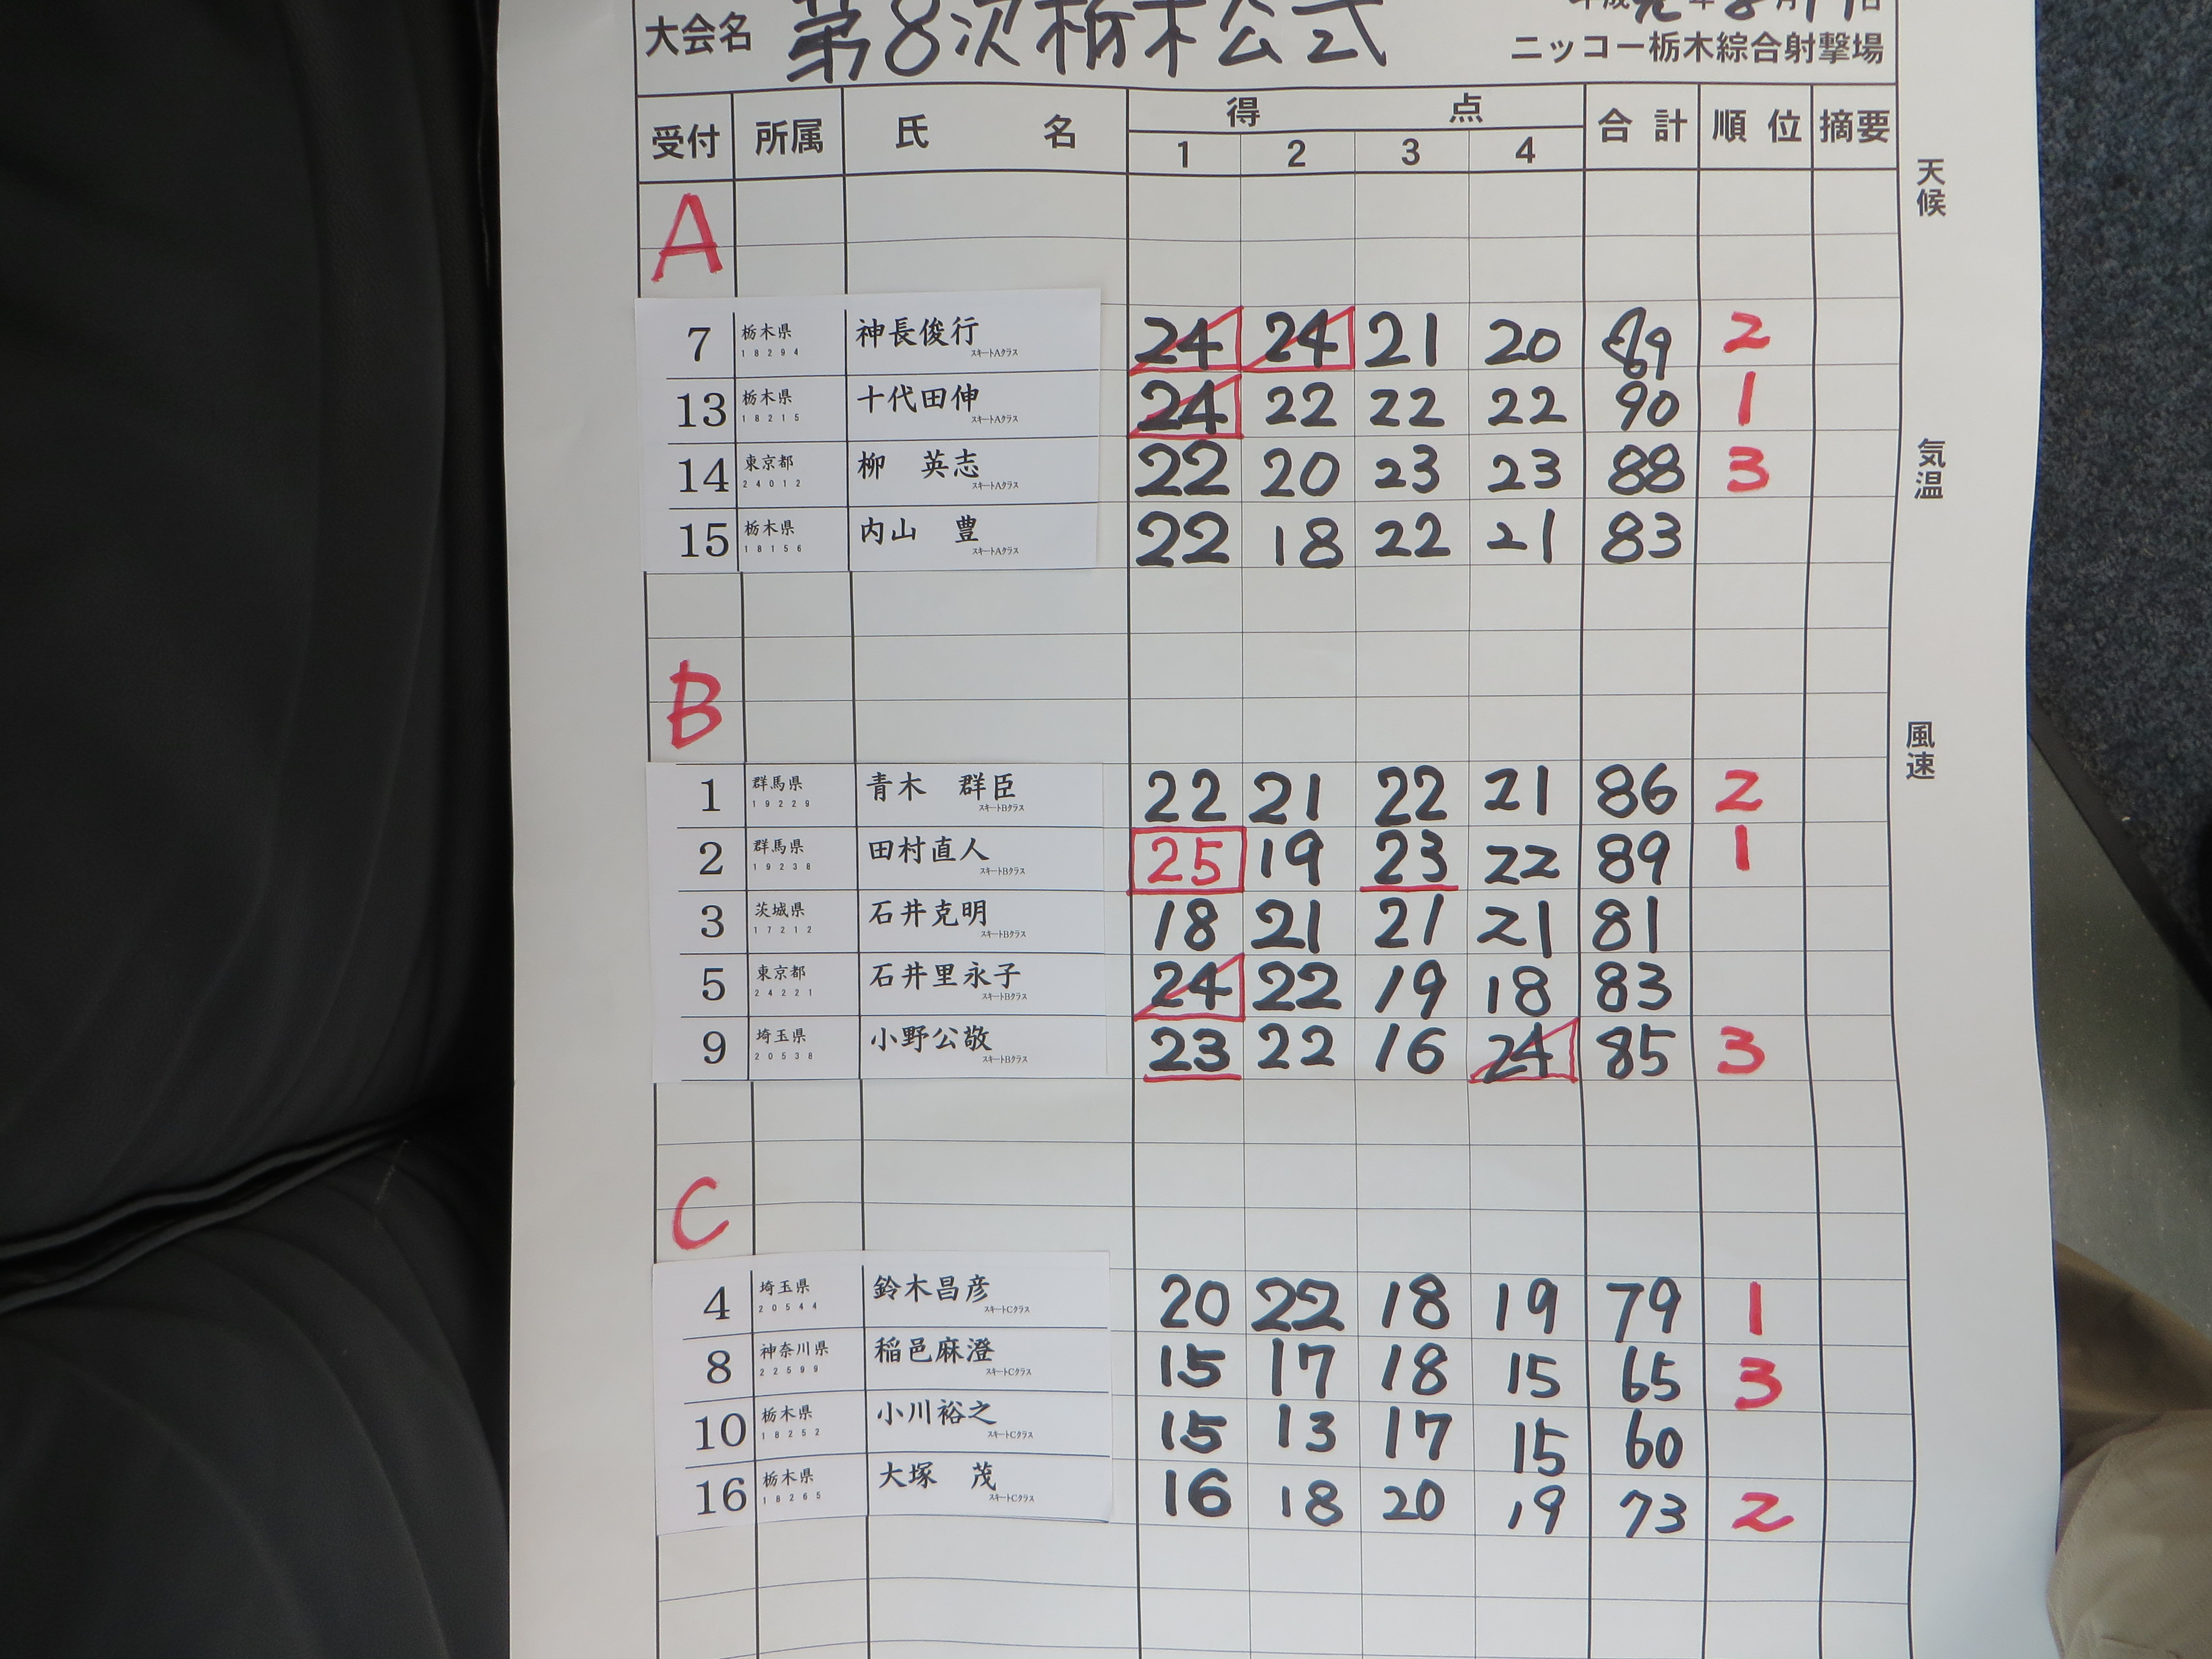 大会名 第8次栃木公式 平成元年8月11日
ニッコー栃木綜合射撃場
受付 所属 氏名 得点 合計 順位 摘要
1 2 3 4
天候
A
7 栃木県 18294 神長俊行 スキートAクラス 24 24 21 20 89 2
13 栃木県 18215 十代田伸 スキートAクラス 24 22 22 22 90 1
14 東京都 24012 柳 英志 スキートAクラス 22 20 23 23 88 3
気温
15 栃木県 18156 内山 豊 スキートAクラス 22 18 22 21 83
B
風速
1 群馬県 19229 青木 群臣 スキートBクラス 22 21 22 21 86 2
2 群馬県 19238 田村直人 スキートBクラス 25 19 23 22 89 1
3 茨城県 17212 石井克明 スキートBクラス 18 21 21 21 81
5 東京都 24221 石井里永子 スキートBクラス 24 22 19 18 83
9 埼玉県 20538 小野公敬 スキートBクラス 23 22 16 24 85 3
C
4 埼玉県 20544 鈴木昌彦 スキートCクラス 20 22 18 19 79 1
8 神奈川県 22599 稲邑麻澄 スキートCクラス 15 17 18 15 65 3
10 栃木県 18252 小川裕之 スキートCクラス 15 13 17 15 60
16 栃木県 18265 大塚 茂 スキートCクラス 16 18 20 19 73 2